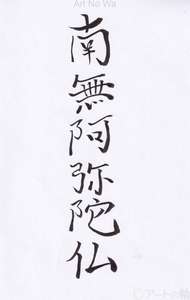 Art No Wa
南無阿弥陀仏
©アートの輪